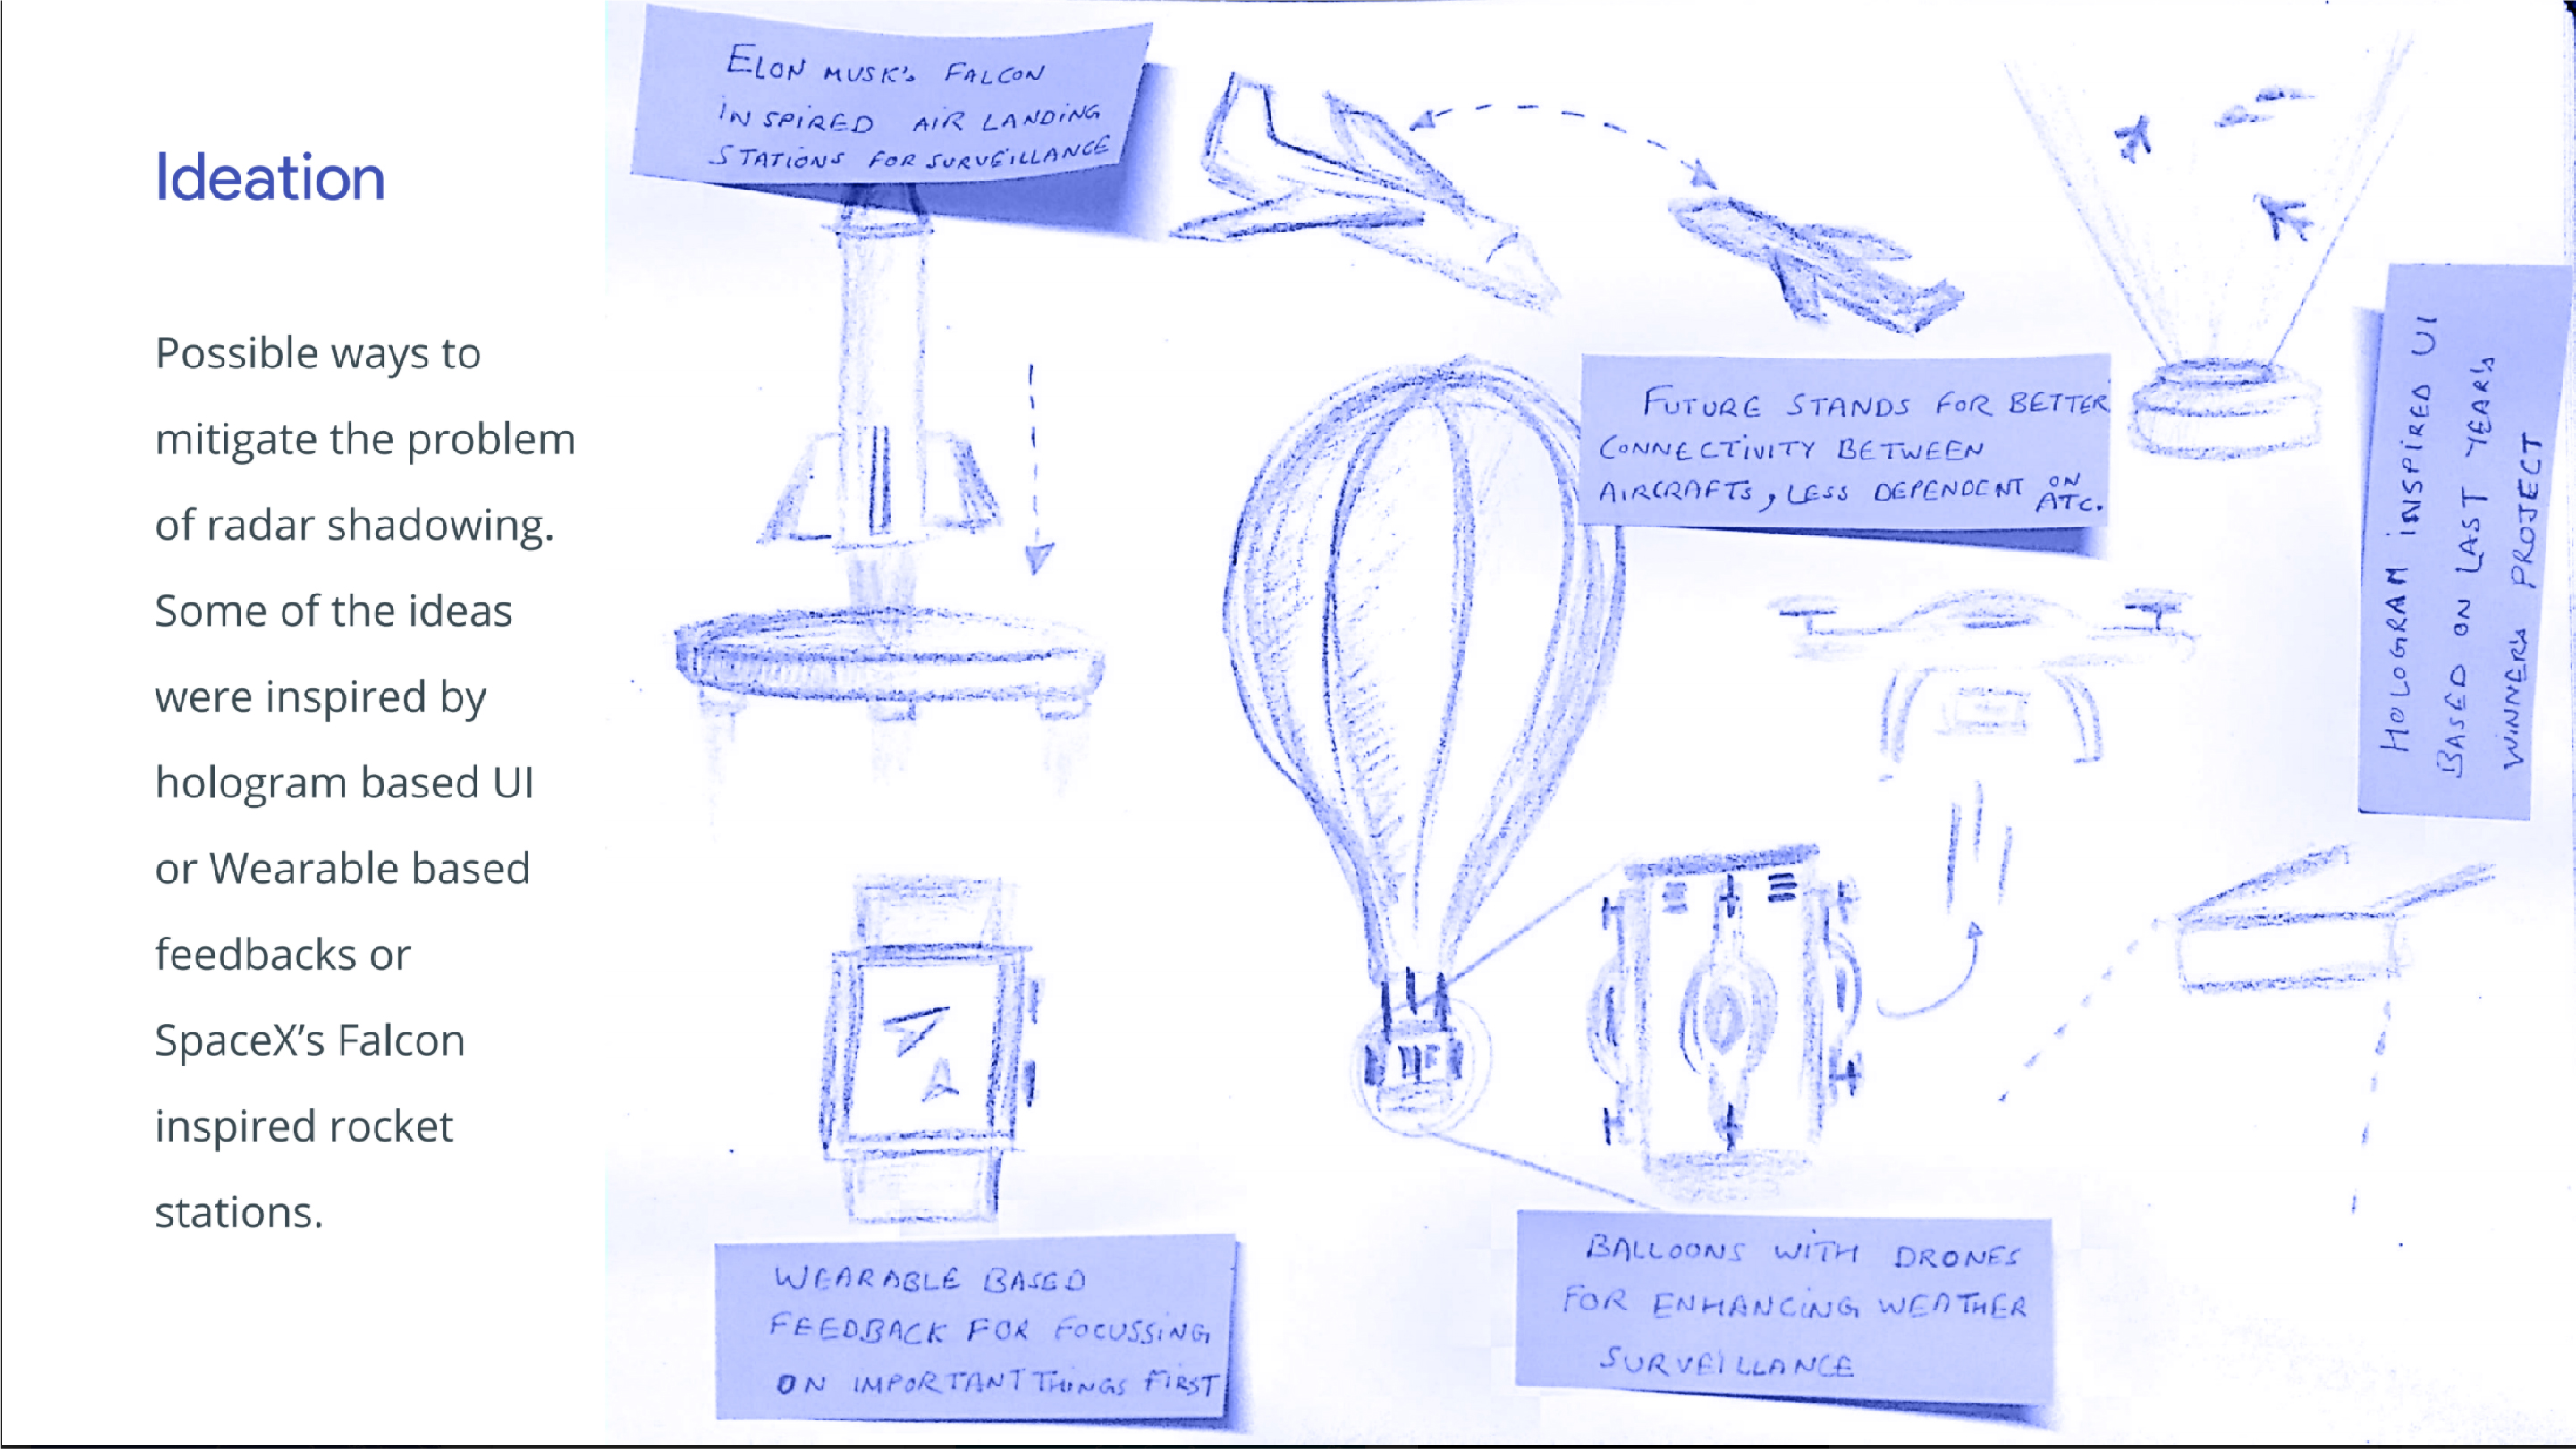 Ideation
Possible ways to
mitigate the problem
of radar shadowing.
Some of the ideas
were inspired by
hologram based UI
or Wearable based
feedbacks or
SpaceX’s Falcon
inspired rocket
stations.
ELON MUSK's FALCON
INSPIRED AIR LANDING
STATIONS FOR SURVEILLANCE
FUTURE STANDS FOR BETTER
CONNECTIVITY BETWEEN
AIRCRAFTS, LESS DEPENDENT ON
ATC.
HOLOGRAM INSPIRED UI
BASED ON LAST YEAR's
WINNER's PROJECT
WEARABLE BASED
FEEDBACK FOR FOCUSSING
ON IMPORTANT THINGS FIRST
BALLOONS WITH DRONES
FOR ENHANCING WEATHER
SURVEILLANCE